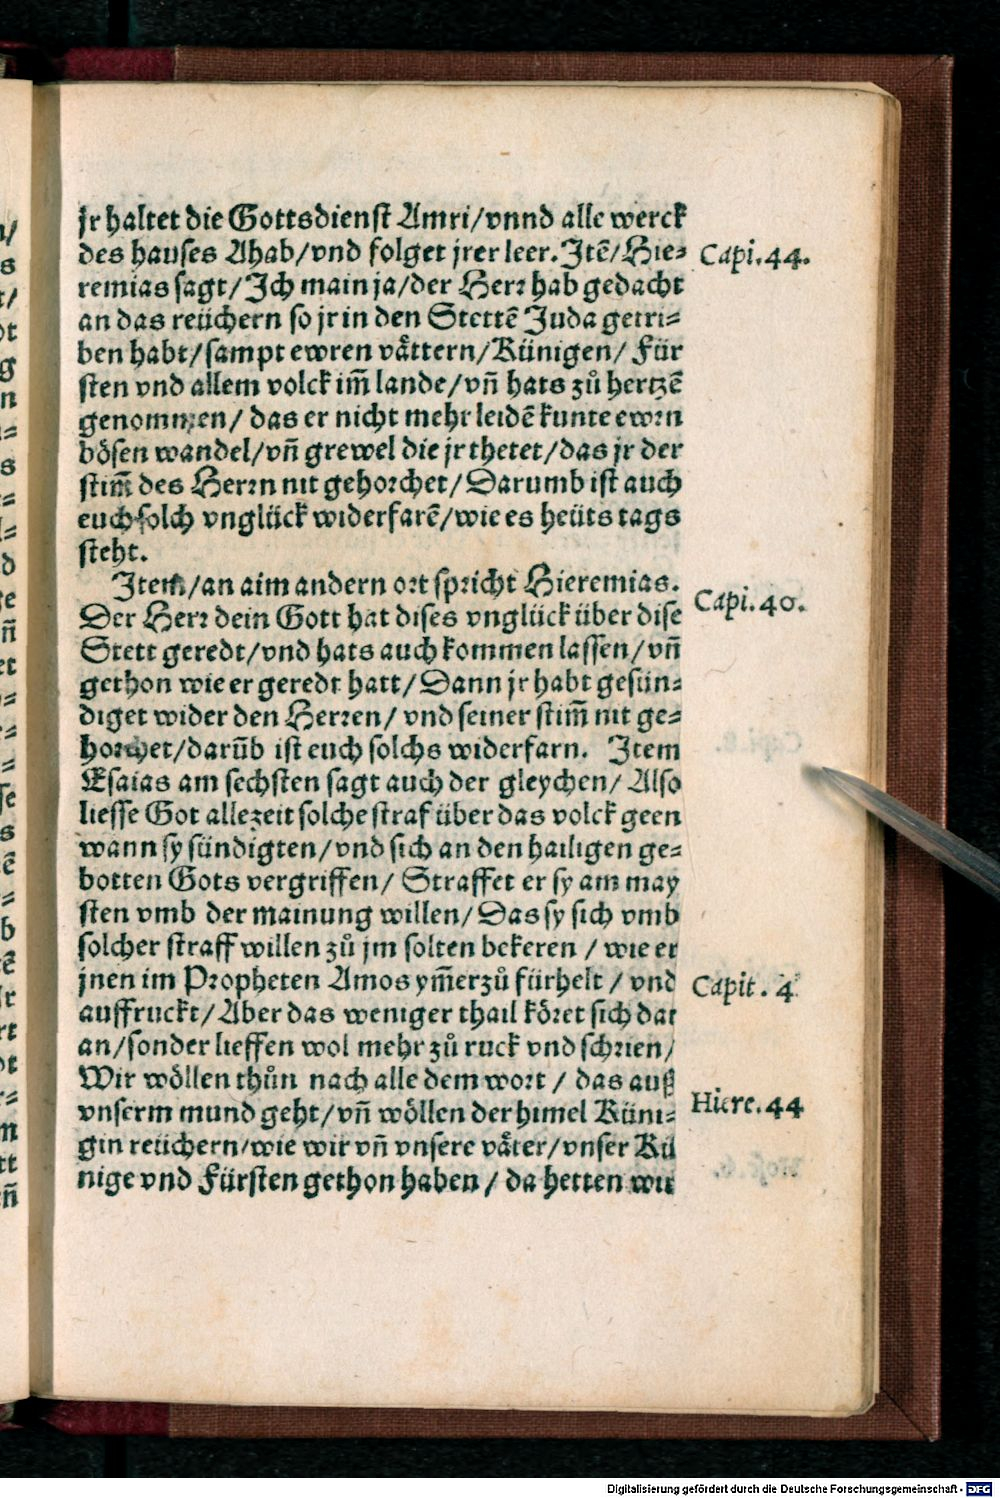 jr haltet die Gottsdienst Amri/vnnd alle werck
des hauses Ahab/vnd folget jrer leer. Itē/Hie⸗
Capi.44.
remias sagt/Ich main ja/der Herr hab gedacht
an das reüchern so jr in den Stettē Juda getri⸗
ben habt/sampt ewren vättern/Künigen/Für
sten vnd allem volck im̄ lande/vn̄ hats zů hertzē
genommen/das er nicht mehr leidē kunte ewrn
bösen wandel/vn̄ grewel die jr thetet/das jr der
stim̄ des Herrn nit gehorchet/Darumb ist auch
euch solch vnglück widerfarē/wie es heüts tags
steht.
Item/an aim andern ort spricht Hieremias.
Capi.40.
Der Herr dein Gott hat dises vnglück über dise
Stett geredt/vnd hats auch kommen lassen/vn̄
gethon wie er geredt hatt/Dann jr habt gesün⸗
diget wider den Herren/vnd seiner stim̄ nit ge⸗
horchet/darūb ist euch solchs widerfarn. Item
Esaias am sechsten sagt auch der gleychen/Also
liesse Got allezeit solche straf über das volck geen
wann sy sündigten/vnd sich an den hailigen ge⸗
botten Gots vergriffen/Straffet er sy am may
sten vmb der mainung willen/Das sy sich vmb
solcher straff willen zů jm solten bekeren/wie er
jnen im Propheten Amos ym̄erzů fürhelt/vnd
Capit. 4.
auffruckt/Aber das weniger thail köret sich dar
an/sonder lieffen wol mehr zů ruck vnd schrien/
Wir wöllen thůn nach alle dem wort/das auß
vnserm mund geht/vn̄ wöllen der himel Küni⸗
Hiere.44
gin reüchern/wie wir vn̄ vnsere väter/vnser Kü
nige vnd Fürsten gethon haben/da hetten wir
Digitalisierung gefördert durch die Deutsche Forschungsgemeinschaft - DFG